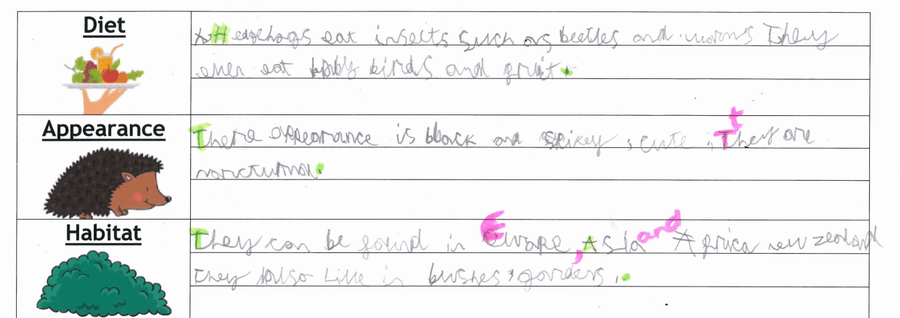 Diet
Hedgehogs eat insects such as beetles and worms They
even eat baby birds and fruit.
Appearance
There appearance is black and spikey, cute, They are
nocturnal.
Habitat
They can be found in Europe, Asia and Africa new zealand
they also like in bushes, gardens.